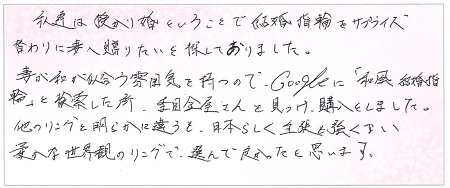 私達は授かり婚ということで結婚指輪をサプライズ
替わりに妻へ贈りたいと探しておりました。
妻が和が似合う雰囲気を持つので、Googleに「和風 結婚指
輪」と検索した所、杢目金屋さんを見つけ、購入をしました。
他のリングと明らかに違うも、日本らしく主張も強くない
柔かな世界観のリングで、選んで良かったと思います。